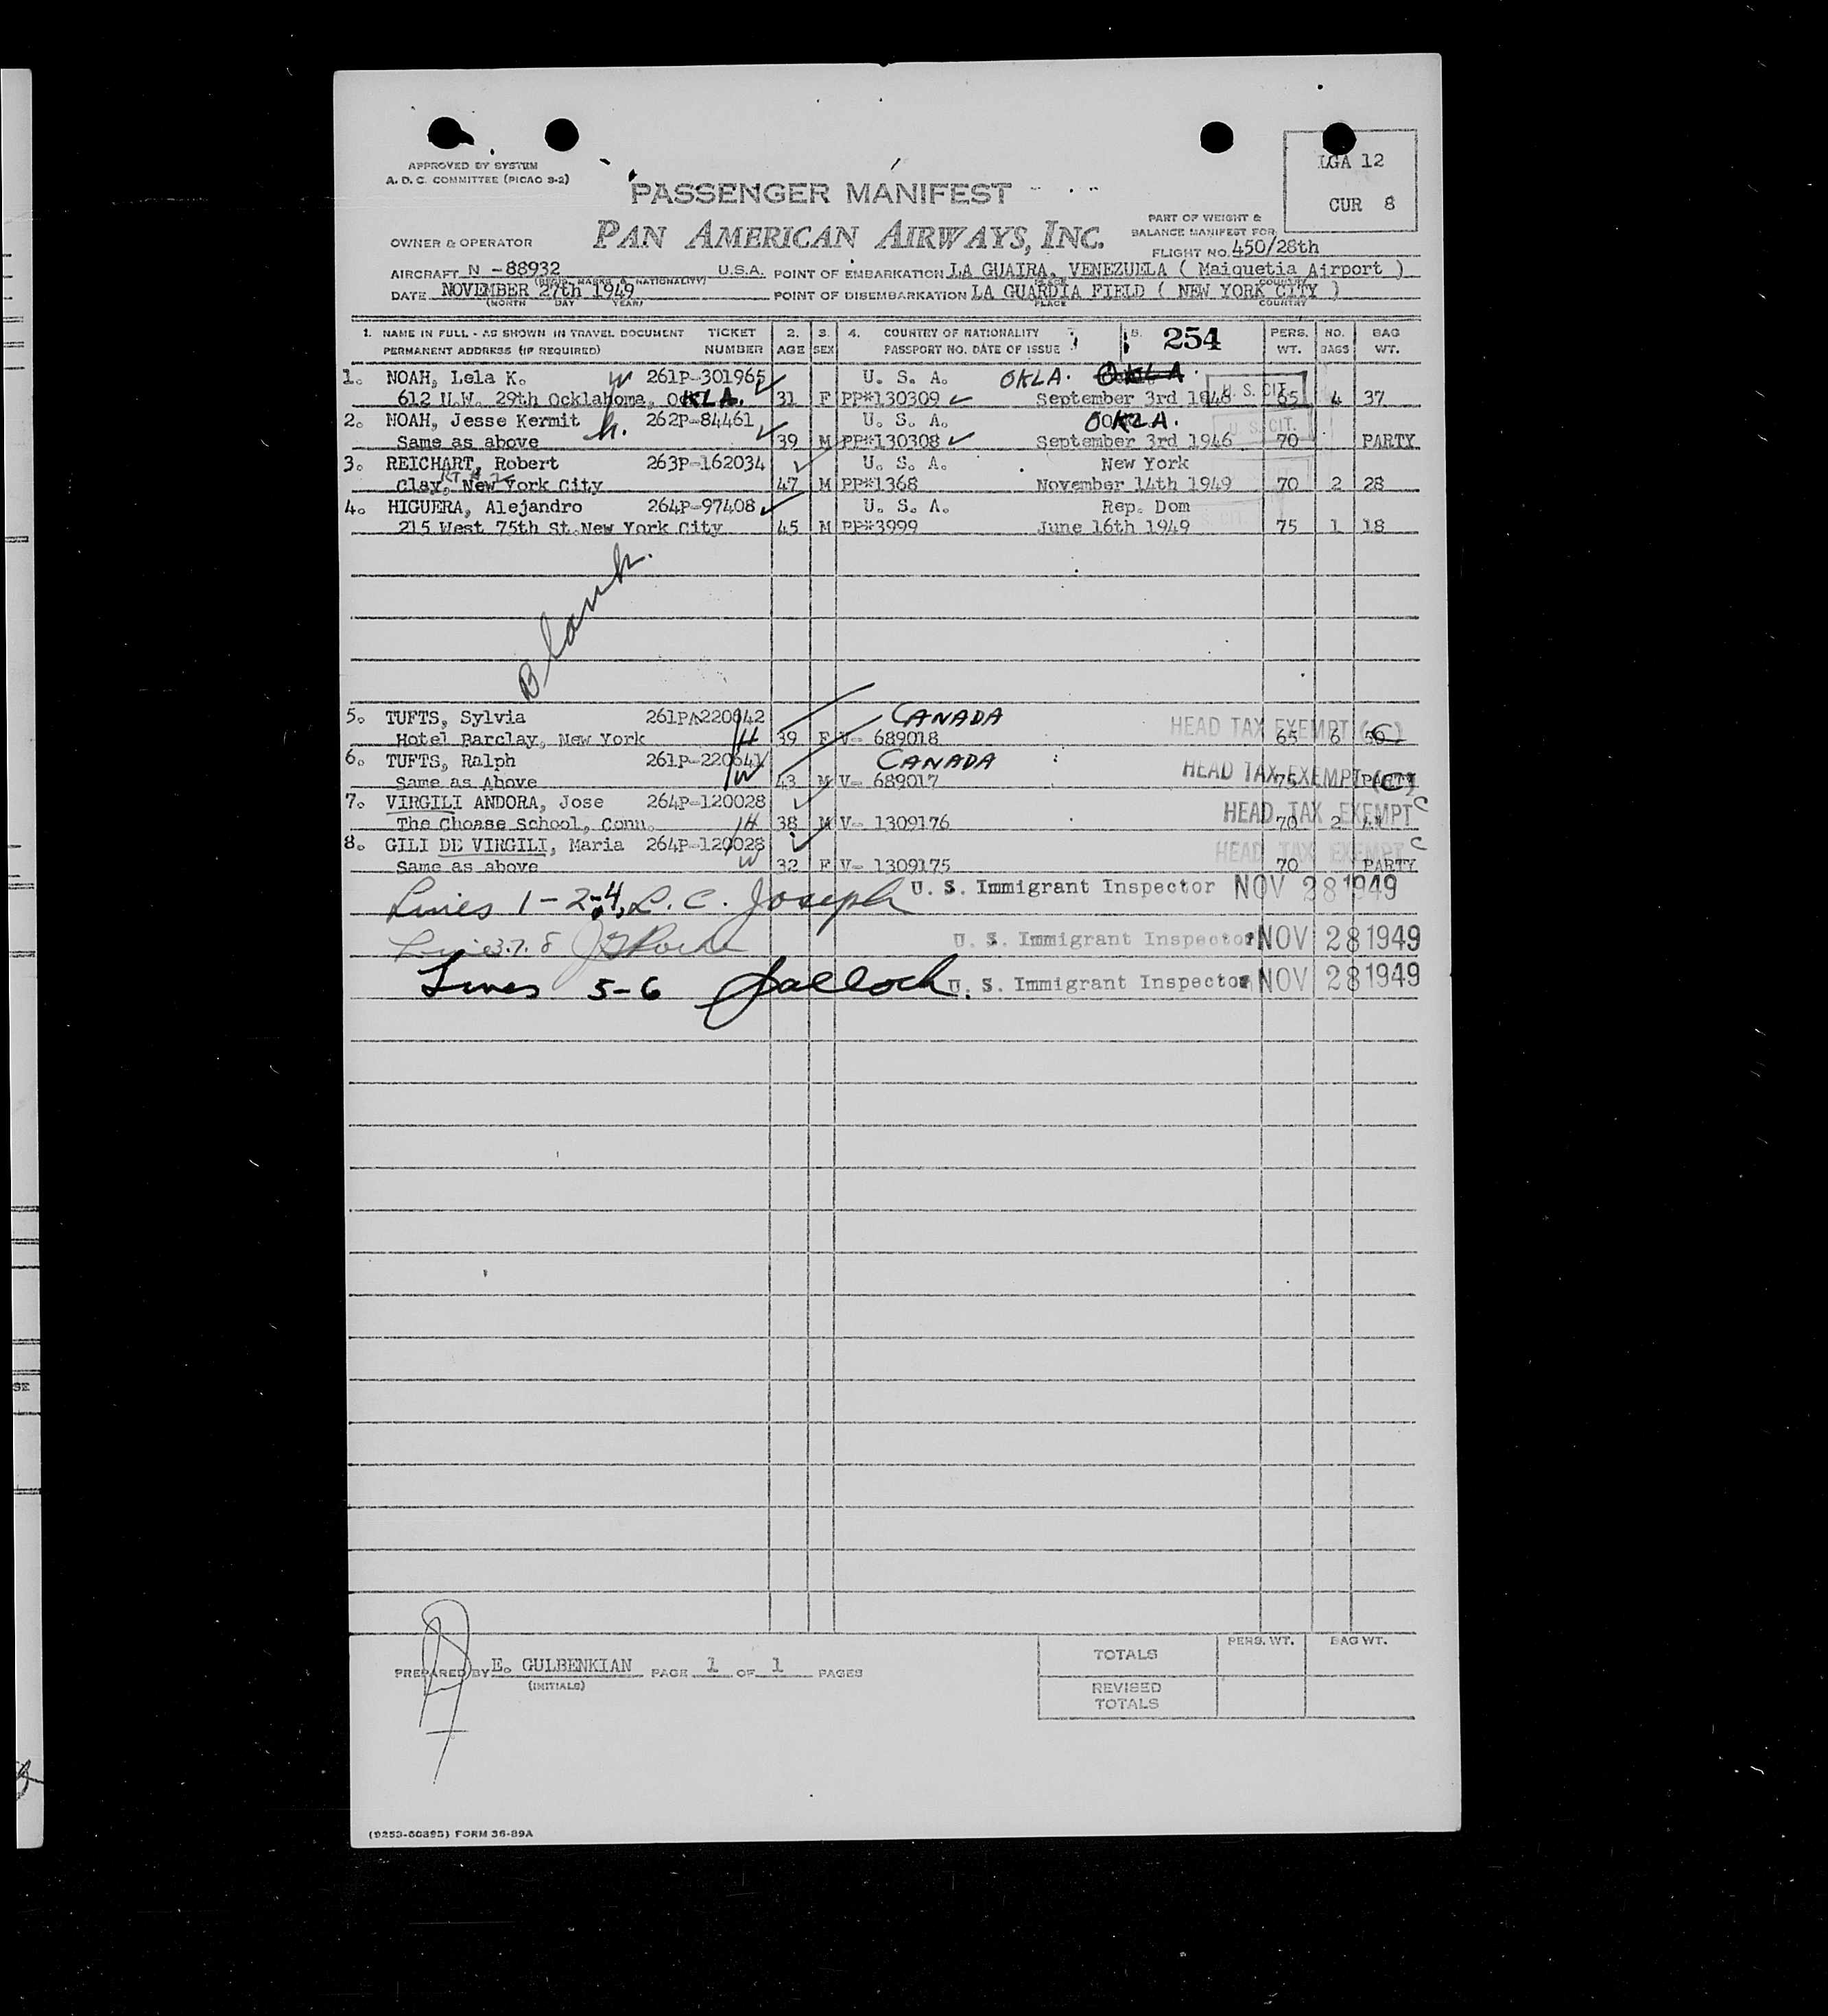 APPROVED BY SYSTEM
A. D. C. COMMITTEE (PICAO S-2)
LGA 12
CUR 8
PASSENGER MANIFEST
PAN AMERICAN AIRWAYS, INC.
PART OF WEIGHT &
BALANCE MANIFEST FOR
FLIGHT NO. 450/28th
OWNER & OPERATOR
AIRCRAFT N -88932 U.S.A. POINT OF EMBARKATION LA GUAIRA, VENEZUELA ( Maiquetia Airport )
(REGIS. MARKS & NATIONALITY) PLACE COUNTRY
DATE NOVEMBER 27th 1949 POINT OF DISEMBARKATION LA GUARDIA FIELD ( NEW YORK CITY )
(MONTH DAY YEAR) PLACE COUNTRY
1. NAME IN FULL - AS SHOWN IN TRAVEL DOCUMENT TICKET 2. 3. 4. COUNTRY OF NATIONALITY 5. 254 PERS. NO. BAG
PERMANENT ADDRESS (IF REQUIRED) NUMBER AGE SEX PASSPORT NO. DATE OF ISSUE WT. BAGS WT.
1. NOAH, Lela K. W 261P-301965 U. S. A. OKLA. OKLA.
612 N.W. 29th Ocklahoma, OKLA. 31 F PP#130309 September 3rd 1946 U. S. CIT. 65 4 37
2. NOAH, Jesse Kermit h. 262P-84461 U. S. A. OKLA.
Same as above 39 M PP#130308 September 3rd 1946 U. S. CIT. 70 PARTY
3. REICHART, Robert 263P-162034 U. S. A. New York
Clay, New York City 47 M PP#1368 November 14th 1949 70 2 28
4. HIGUERA, Alejandro 264P-97408 U. S. A. Rep. Dom
215 West 75th St.New York City 45 M PP#3999 June 16th 1949 S. CIT. 75 1 18
Blank.
5. TUFTS, Sylvia 261PA220642 CANADA HEAD TAX EXEMPT (C)
Hotel Barclay, New York H 39 F V- 689018 65 6 50
6. TUFTS, Ralph 261P-220641 CANADA HEAD TAX EXEMPT (C)
Same as Above W 43 M V- 689017 75 PARTY
7. VIRGILI ANDORA, Jose 264P-120028 HEAD TAX EXEMPT C
The Choase School, Conn. H 38 M V- 1309176 70 2
8. GILI DE VIRGILI, Maria 264P-120028 HEAD TAX EXEMPT C
Same as above W 32 F V- 1309175 70 PARTY
Lines 1-2-4, L. C. Joseph U. S. Immigrant Inspector NOV 28 1949
Line 3. 7. 8 U. S. Immigrant Inspector NOV 28 1949
Lines 5-6 U. S. Immigrant Inspector NOV 28 1949
SE
PREPARED BY E. GULBENKIAN PAGE 1 OF 1 PAGES
(INITIALS)
PERS. WT. BAG WT.
TOTALS
REVISED
TOTALS
(9253-60395) FORM 36-89A